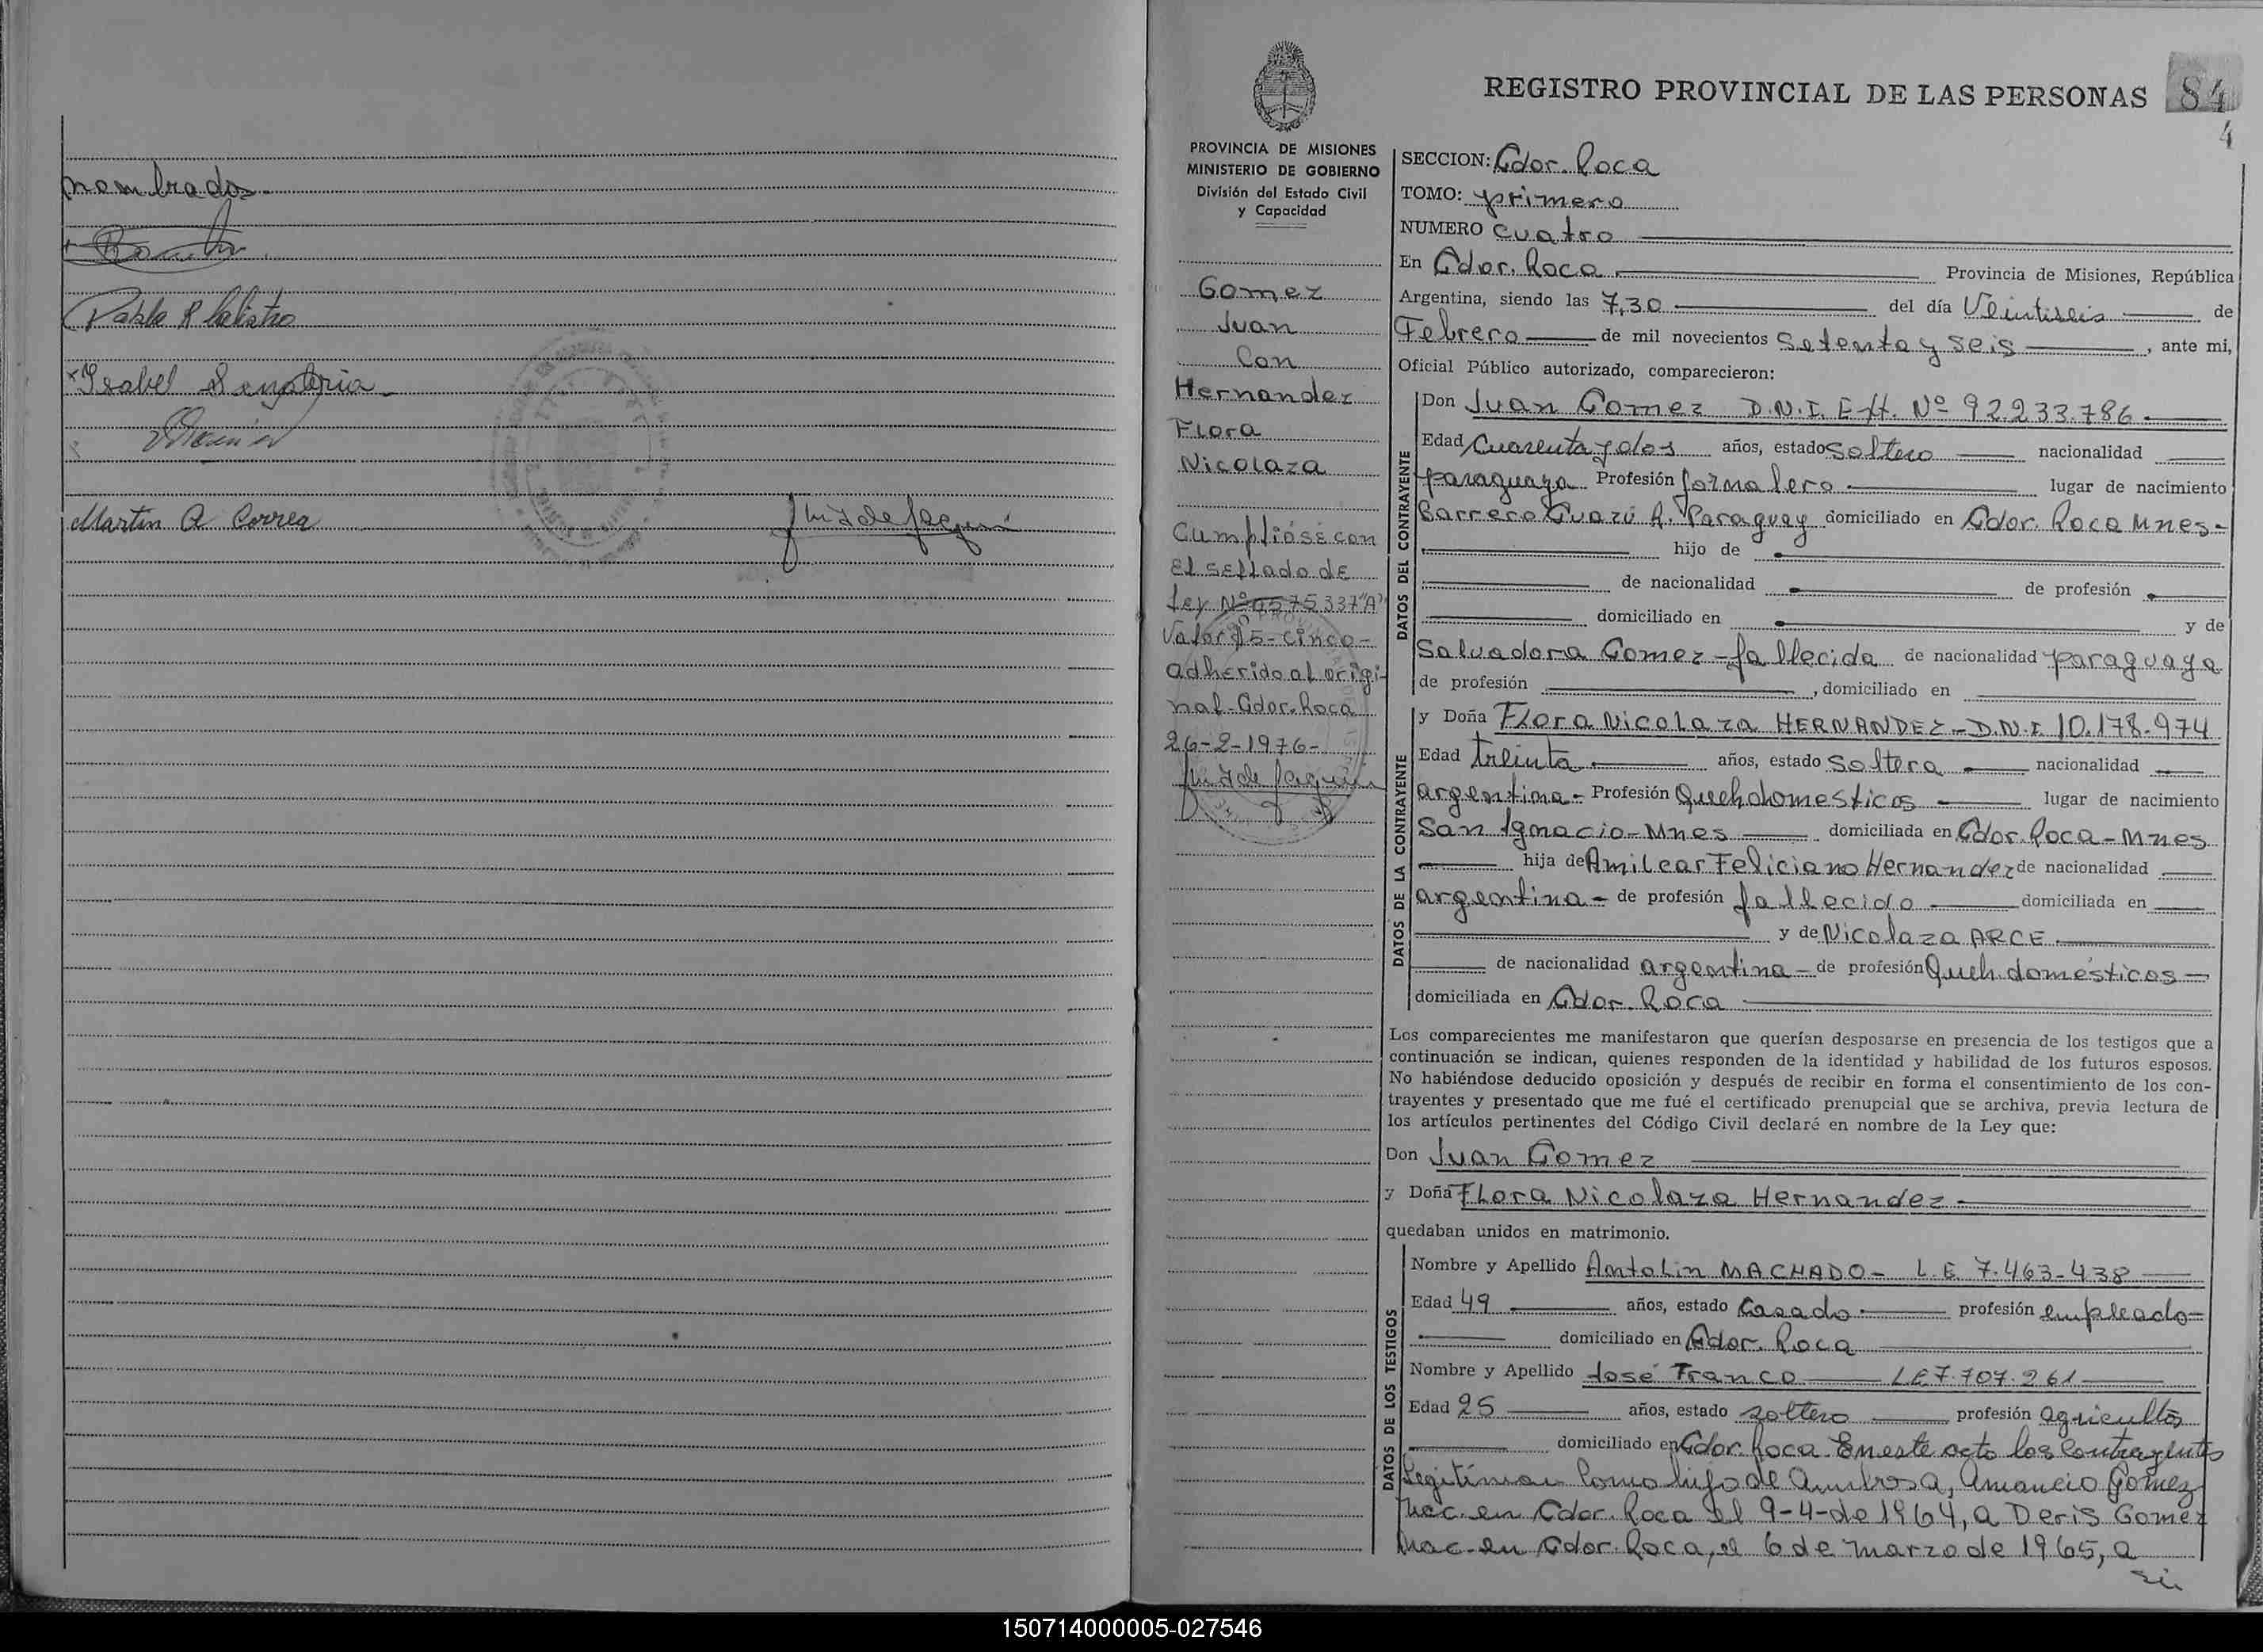 nombrados.
Pablo R
Isabel
Martin A Correa
REGISTRO PROVINCIAL DE LAS PERSONAS 84
4
PROVINCIA DE MISIONES
MINISTERIO DE GOBIERNO
División del Estado Civil
y Capacidad
Gomez
Juan
Con
Hernandez
Flora
Nicolaza
Cumplióse con
el sellado de
Ley Nº 0575337"A"
Valor $5-cinco-
adherido al origi-
nal-Gdor. Roca
26-2-1976-
SECCION: Gdor. Roca
TOMO: primero
NUMERO cuatro
En Gdor. Roca Provincia de Misiones, República
Argentina, siendo las 7,30 del día Veintiseis de
Febrero de mil novecientos Setenta y Seis, ante mi,
Oficial Público autorizado, comparecieron:
DATOS DEL CONTRAYENTE
Don Juan Gomez D.N.I. Ext. Nº 92.233.786.
Edad Cuarenta y dos años, estado Soltero nacionalidad
paraguaya Profesión jornalero lugar de nacimiento
Barrero Guazú R. Paraguay domiciliado en Gdor. Roca Mnes-
hijo de
de nacionalidad de profesión
domiciliado en y de
Salvadora Gomez - fallecida de nacionalidad paraguaya
de profesión , domiciliado en
DATOS DE LA CONTRAYENTE
y Doña Flora Nicolaza HERNANDEZ - D.N.I. 10.178.974
Edad treinta años, estado Soltera nacionalidad
argentina - Profesión Queh domesticos lugar de nacimiento
San Ignacio-Mnes domiciliada en Gdor. Roca-Mnes
hija de Amilcar Feliciano Hernandez de nacionalidad
argentina - de profesión fallecido domiciliada en
y de Nicolaza ARCE
de nacionalidad argentina - de profesión Queh. domésticos
domiciliada en Gdor. Roca
Los comparecientes me manifestaron que querían desposarse en presencia de los testigos que a
continuación se indican, quienes responden de la identidad y habilidad de los futuros esposos.
No habiéndose deducido oposición y después de recibir en forma el consentimiento de los con-
trayentes y presentado que me fué el certificado prenupcial que se archiva, previa lectura de
los artículos pertinentes del Código Civil declaré en nombre de la Ley que:
Don Juan Gomez
y Doña Flora Nicolaza Hernandez
quedaban unidos en matrimonio.
DATOS DE LOS TESTIGOS
Nombre y Apellido Antolin MACHADO- L.E. 7.463-438
Edad 49 años, estado Casado profesión empleado
domiciliado en Gdor. Roca
Nombre y Apellido José Franco L.E 7.707.261
Edad 25 años, estado soltero profesión agricultor
domiciliado en Gdor. Roca. En este acto los contrayentes
legitiman como hijo de ambos a, Amancio Gomez
nac. en Gdor. Roca el 9-4-de 1964, a Deris Gomez
nac. en Gdor. Roca, el 6 de marzo de 1965, a
150714000005-027546